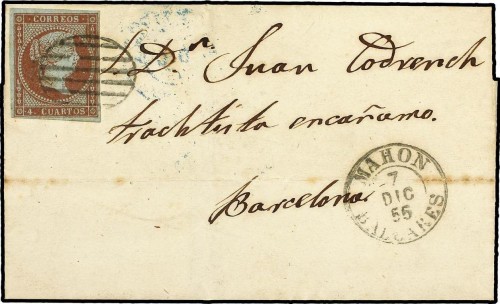 CORREOS
4 CUARTOS
Dn Juan Codrench
encañamo.
Barcelona
MAHON
7
DIC
55
BALEARES